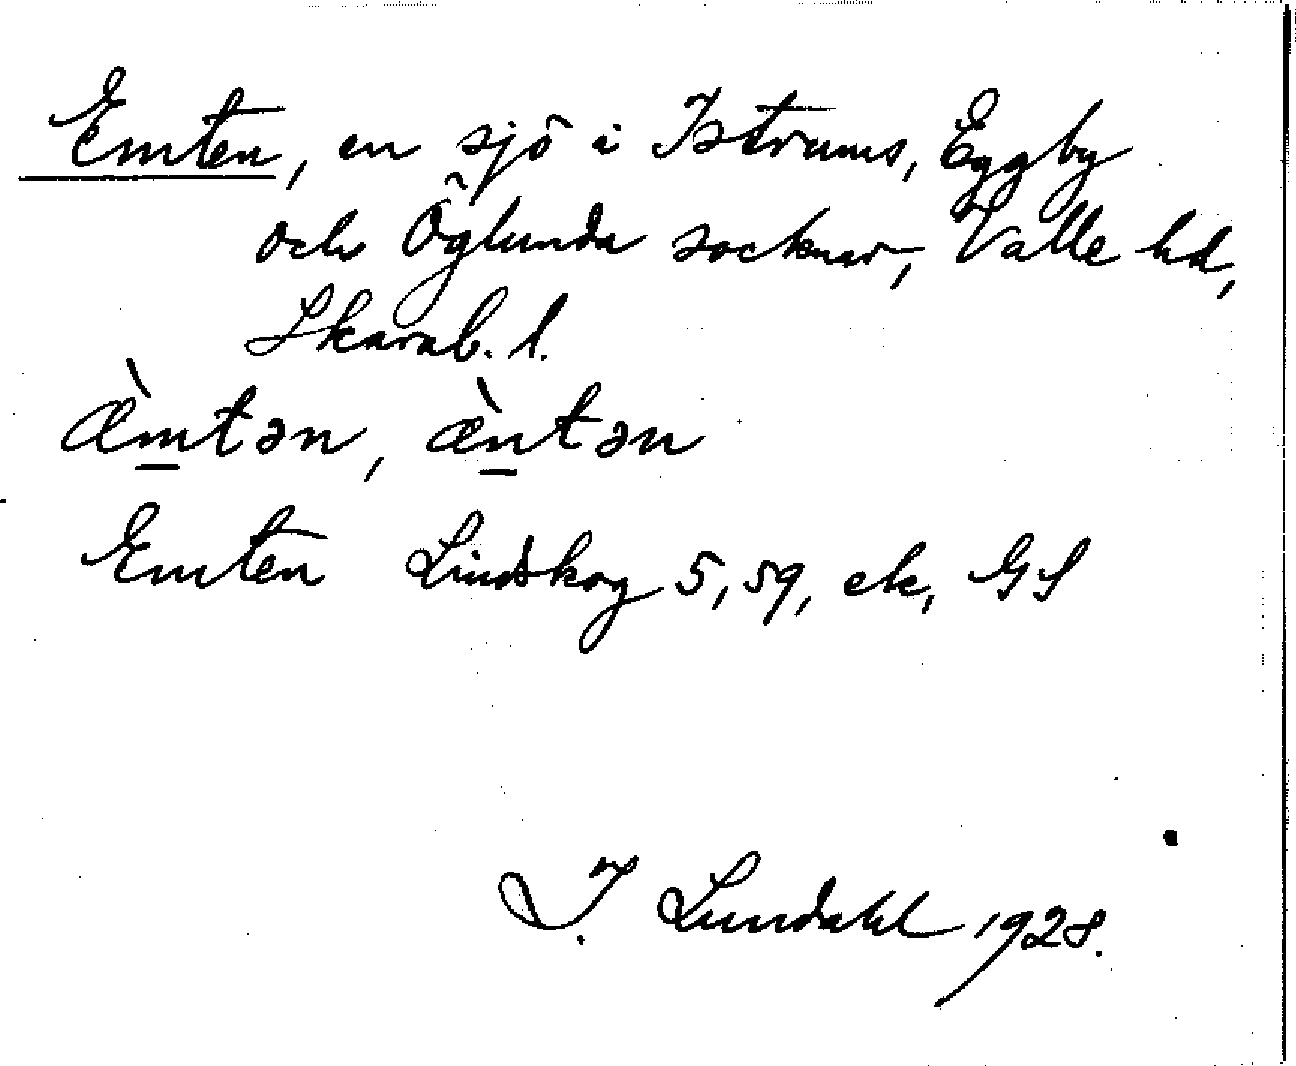 Emten, en sjö i Istrums, Eggby
och Öglunda socknar, Valle hd,
Skarab. l.
æ̀m̱tən, æ̀ṉtən
Emten Lindskog 5, 59, ek, GS
I. Lundahl 1928.